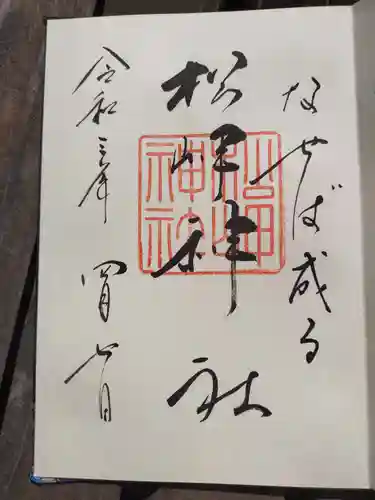 なせば成る
松岬神社
令和三年
四月七日
松岬
神社